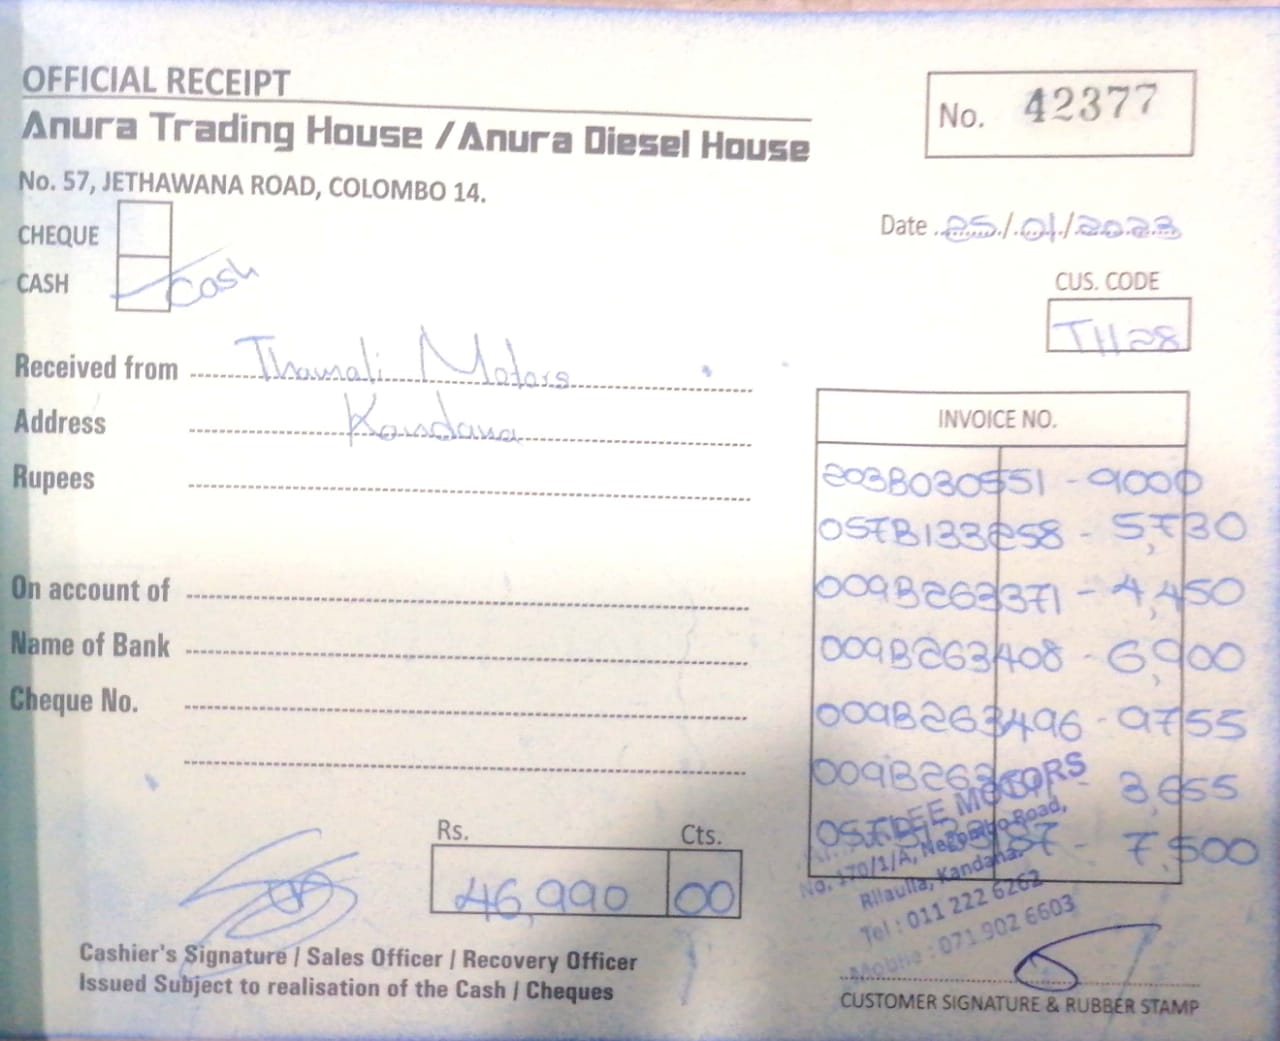 OFFICIAL RECEIPT
Anura Trading House / Anura Diesel House
No. 42377
No. 57, JETHAWANA ROAD, COLOMBO 14.
CHEQUE
Date 25/01/2023
CASH Cash
CUS. CODE
T1128
Received from Thamali Motors
Address Kandana
Rupees
On account of
Name of Bank
Cheque No.
INVOICE NO.
203B030551 - 9000
057B133258 - 5,730
009B263371 - 4,450
009B263408 - 6,900
009B263496 - 9755
009B263 - 3,655
057B - 7,500
MOTORS
No. 170/1/A, Negombo Road,
Rilaulla, Kandana.
Tel : 011 222 6262
Mobile : 071 902 6603
Rs. Cts.
46,990 00
Cashier's Signature / Sales Officer / Recovery Officer
Issued Subject to realisation of the Cash / Cheques
CUSTOMER SIGNATURE & RUBBER STAMP